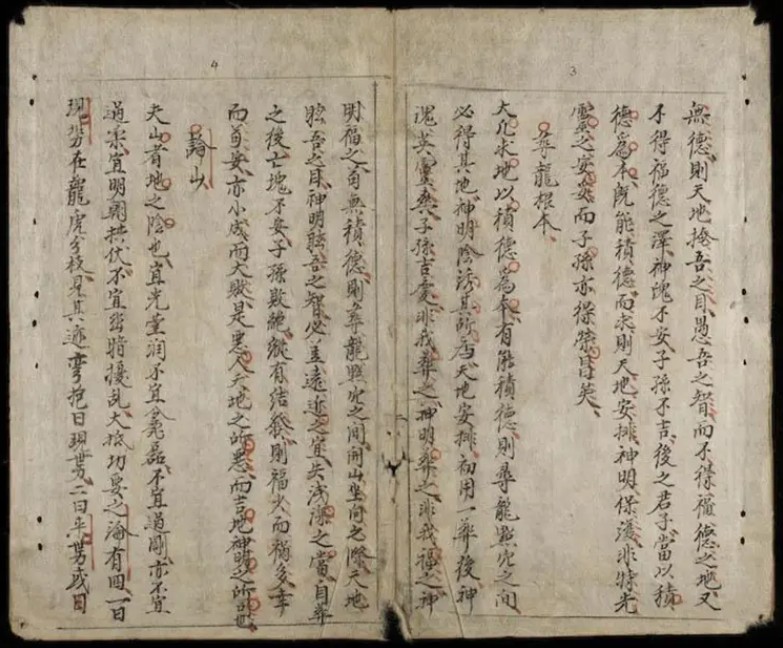 3
無德則天地掩吾之目愚吾之智而不得福德之地又
不得福德之澤神魄不安子孫不吉後之君子當以積
德爲本旣能積德而求則天地安排神明保護非特先
靈之安妥而子孫亦得榮昌矣
尋龍根本
大凡求地以積德爲本有能積德則尋龍點穴之間
必得其地神明陰誘其所天地安排初用一葬後神
魂英靈子孫吉慶非我葬之神明葬之非我福之神
4
明福之苟無積德則尋龍點穴之間開山坐向之際天地
眩吾之目神明眩吾之智必差遠近之宜失浅深之當自葬
之後亡魂不安子孫敗絕縱有結發則福少而禍多幸
而苟安亦小成而大敗是惡人天地之所惡而吉地神明之所司也
論山
夫山者地之陰也宜光潤不宜麄磊不宜過剛亦不宜
過柔宜明朗拱伏不宜暗擾乱大抵切要之論有四一曰
現势在龍虎分枝見其迹彎抱曰現势二曰平势或曰